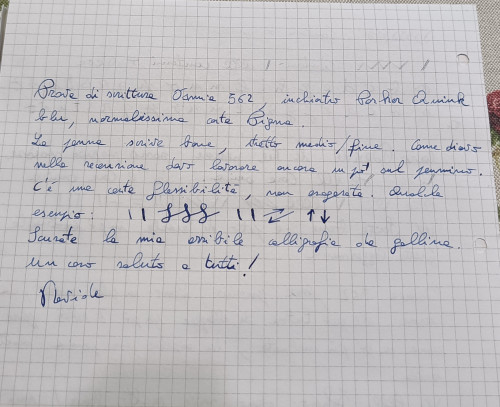 Prova di scrittura Osmia 562, inchiostro Parker Quink
blu, normalissima carta Pigna.
La penna scrive bene, tratto medio/fine. Come dicevo
nella recensione devo lavorare ancora un po' sul pennino.
C'è una certa flessibilità, non esagerata. Qualche
esempio:
Scusate la mia orribile calligrafia da gallina.
Un caro saluto a tutti!